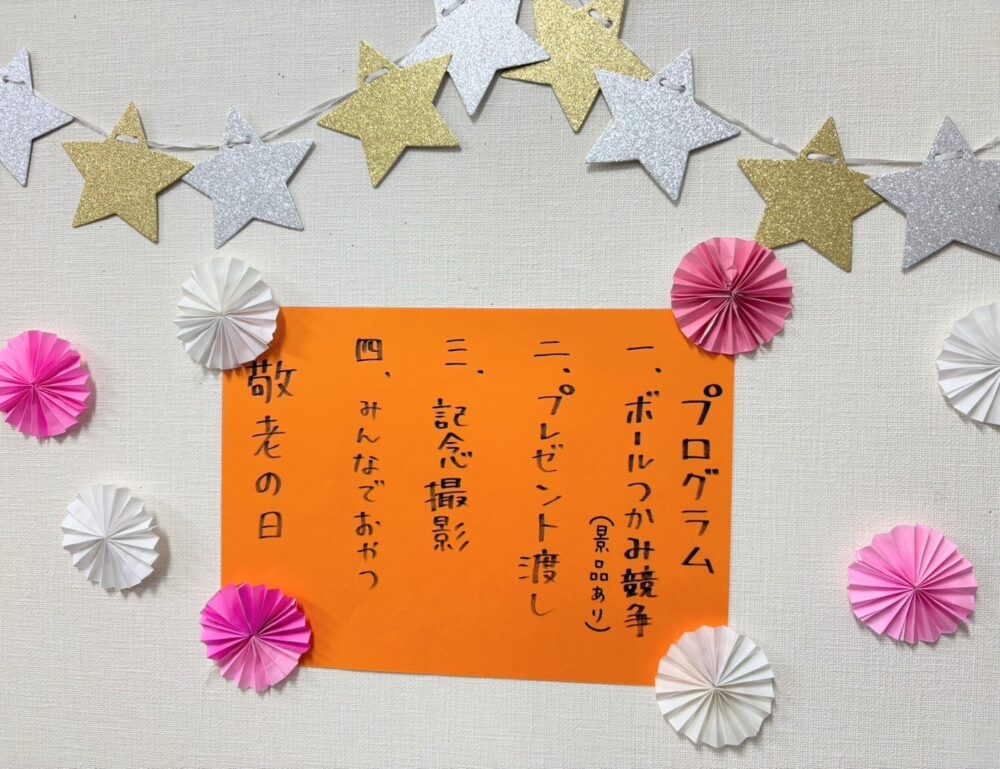 プログラム
一、ボールつかみ競争
(景品あり)
二、プレゼント渡し
三、記念撮影
四、みんなでおやつ
敬老の日